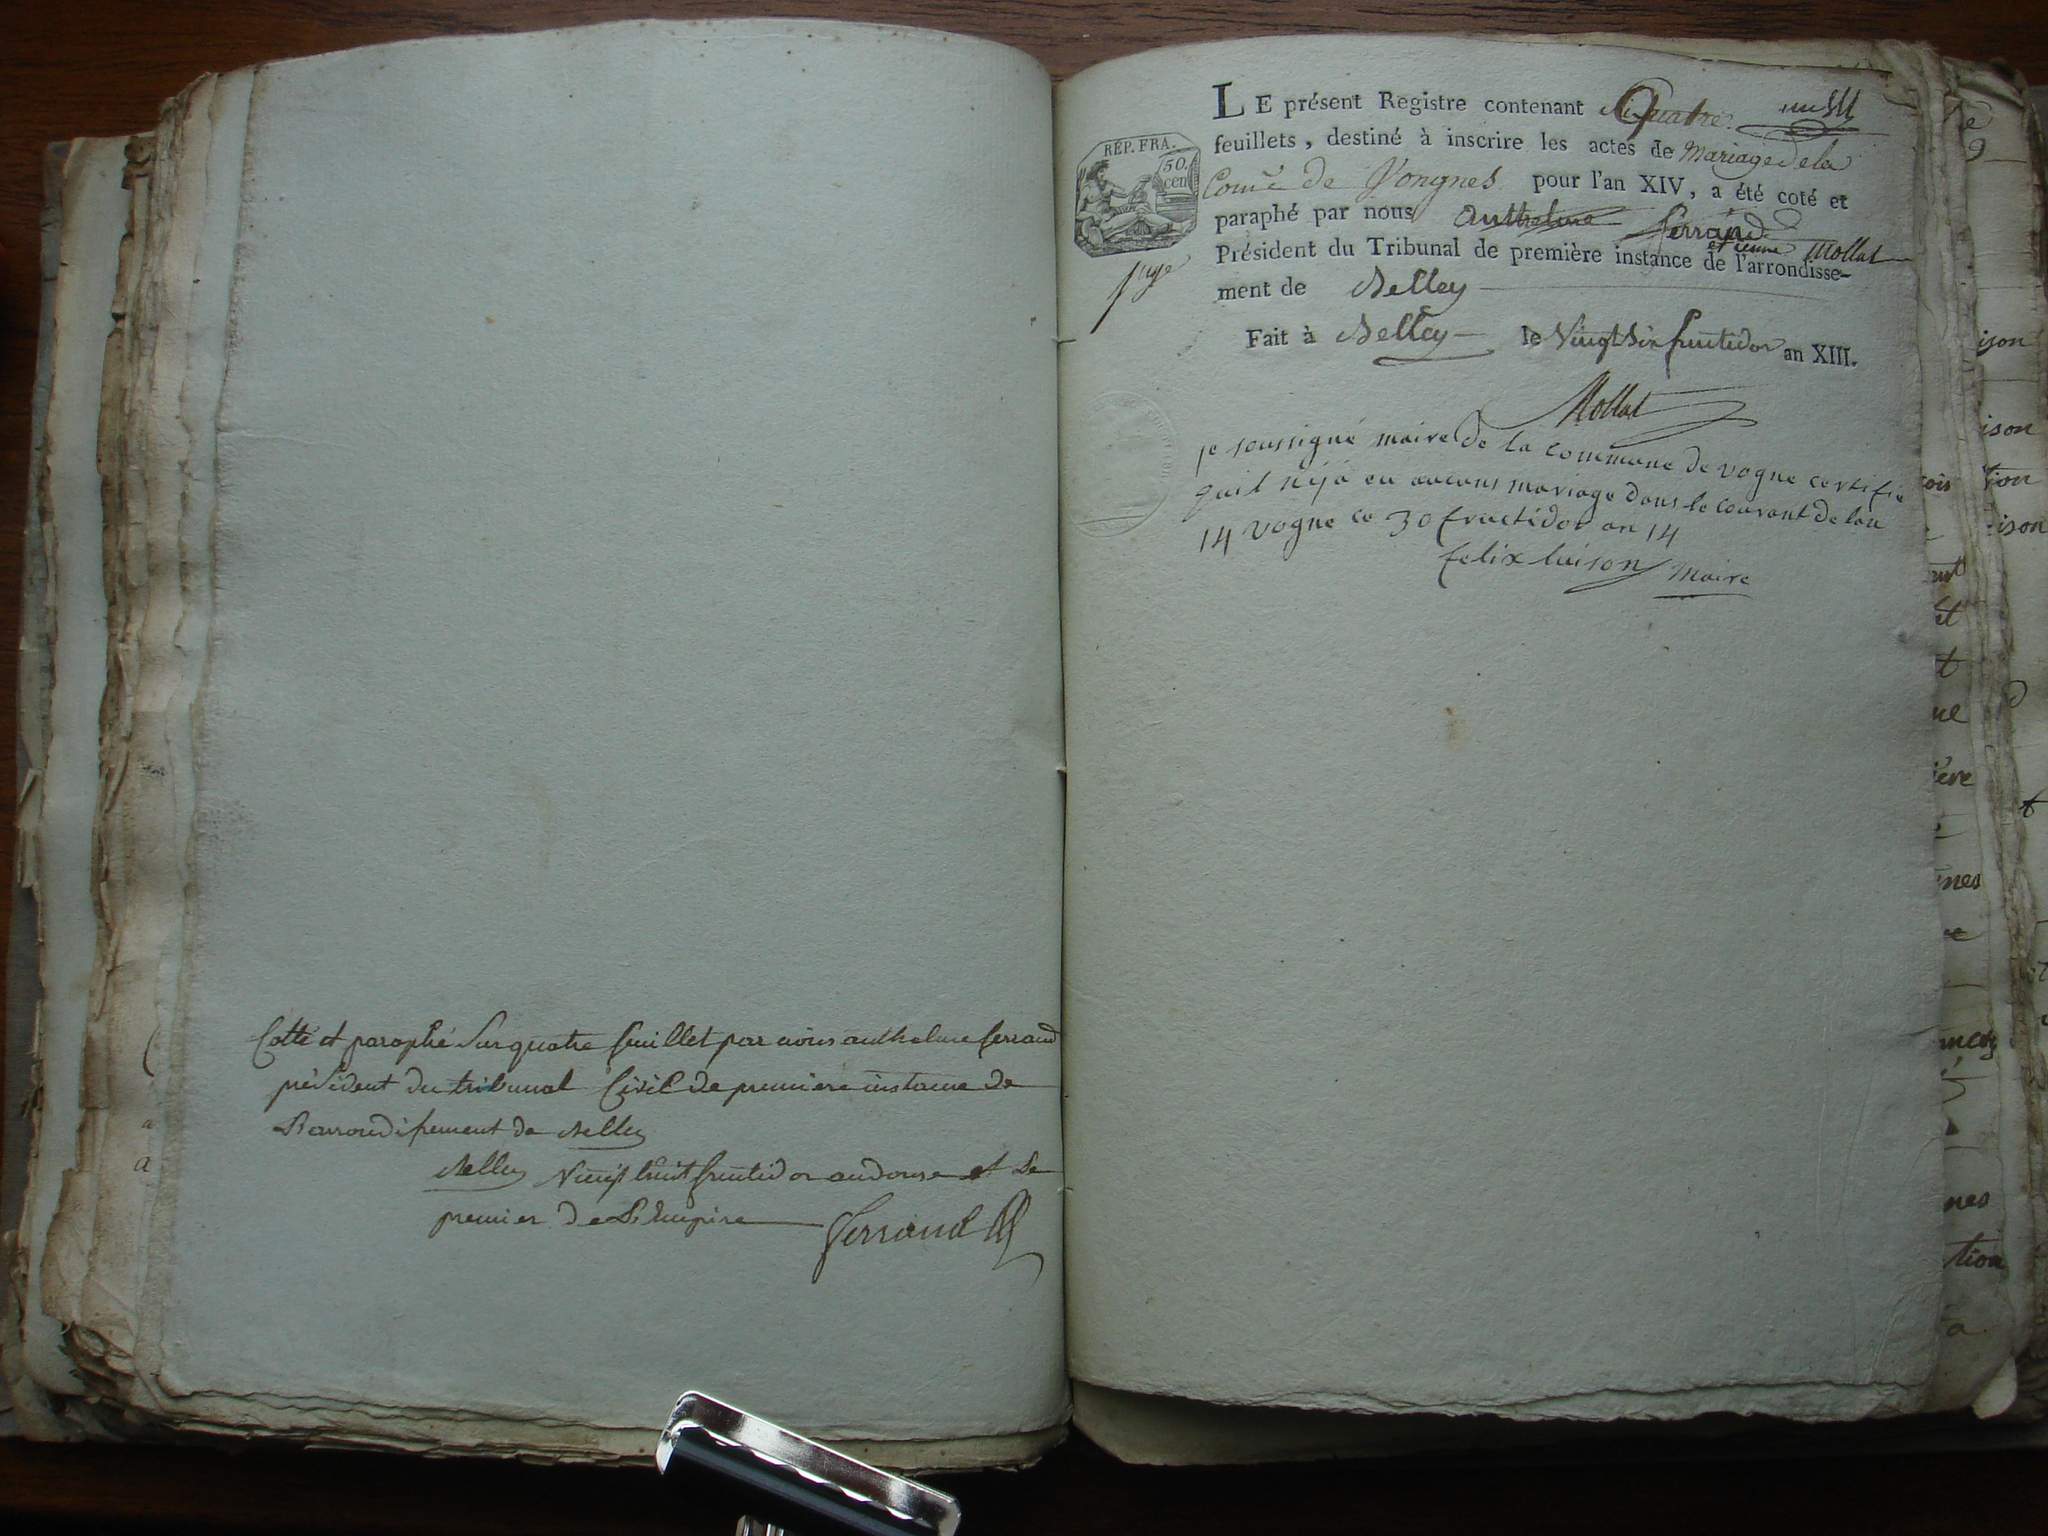 Cotté et paraphé Sur quatre feuillet par nous anthelme ferrand
président du tribunal Civil de premiere instance de
L'arrondissement de Belley
Belley Vingt huit fructidor an douze et Le
premier de L'Empire
Ferrand
REP. FRA.
50.
cen
juge
LE présent Registre contenant Quatre
feuillets, destiné à inscrire les actes de Mariage de la
Comne de Vongnes pour l'an XIV, a été coté et
paraphé par nous Anthelme Ferrand
etienne Mollat
Président du Tribunal de première instance de l'arrondisse-
ment de Belley
Fait à Belley le Vingt Six fructidor an XIII.
Mollat
je soussigné maire de la commune de vogne certifie
quil nija eu aucuns mariage dans le courant de lan
14 vogne ce 30 fructidor an 14
felix luison maire